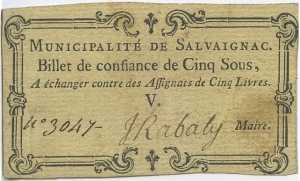 MUNICIPALITÉ DE SALVAIGNAC.
Billet de confiance de Cinq Sous,
A échanger contre des Assignats de Cinq Livres.
V.
N° 3047- JRabaly Maire.